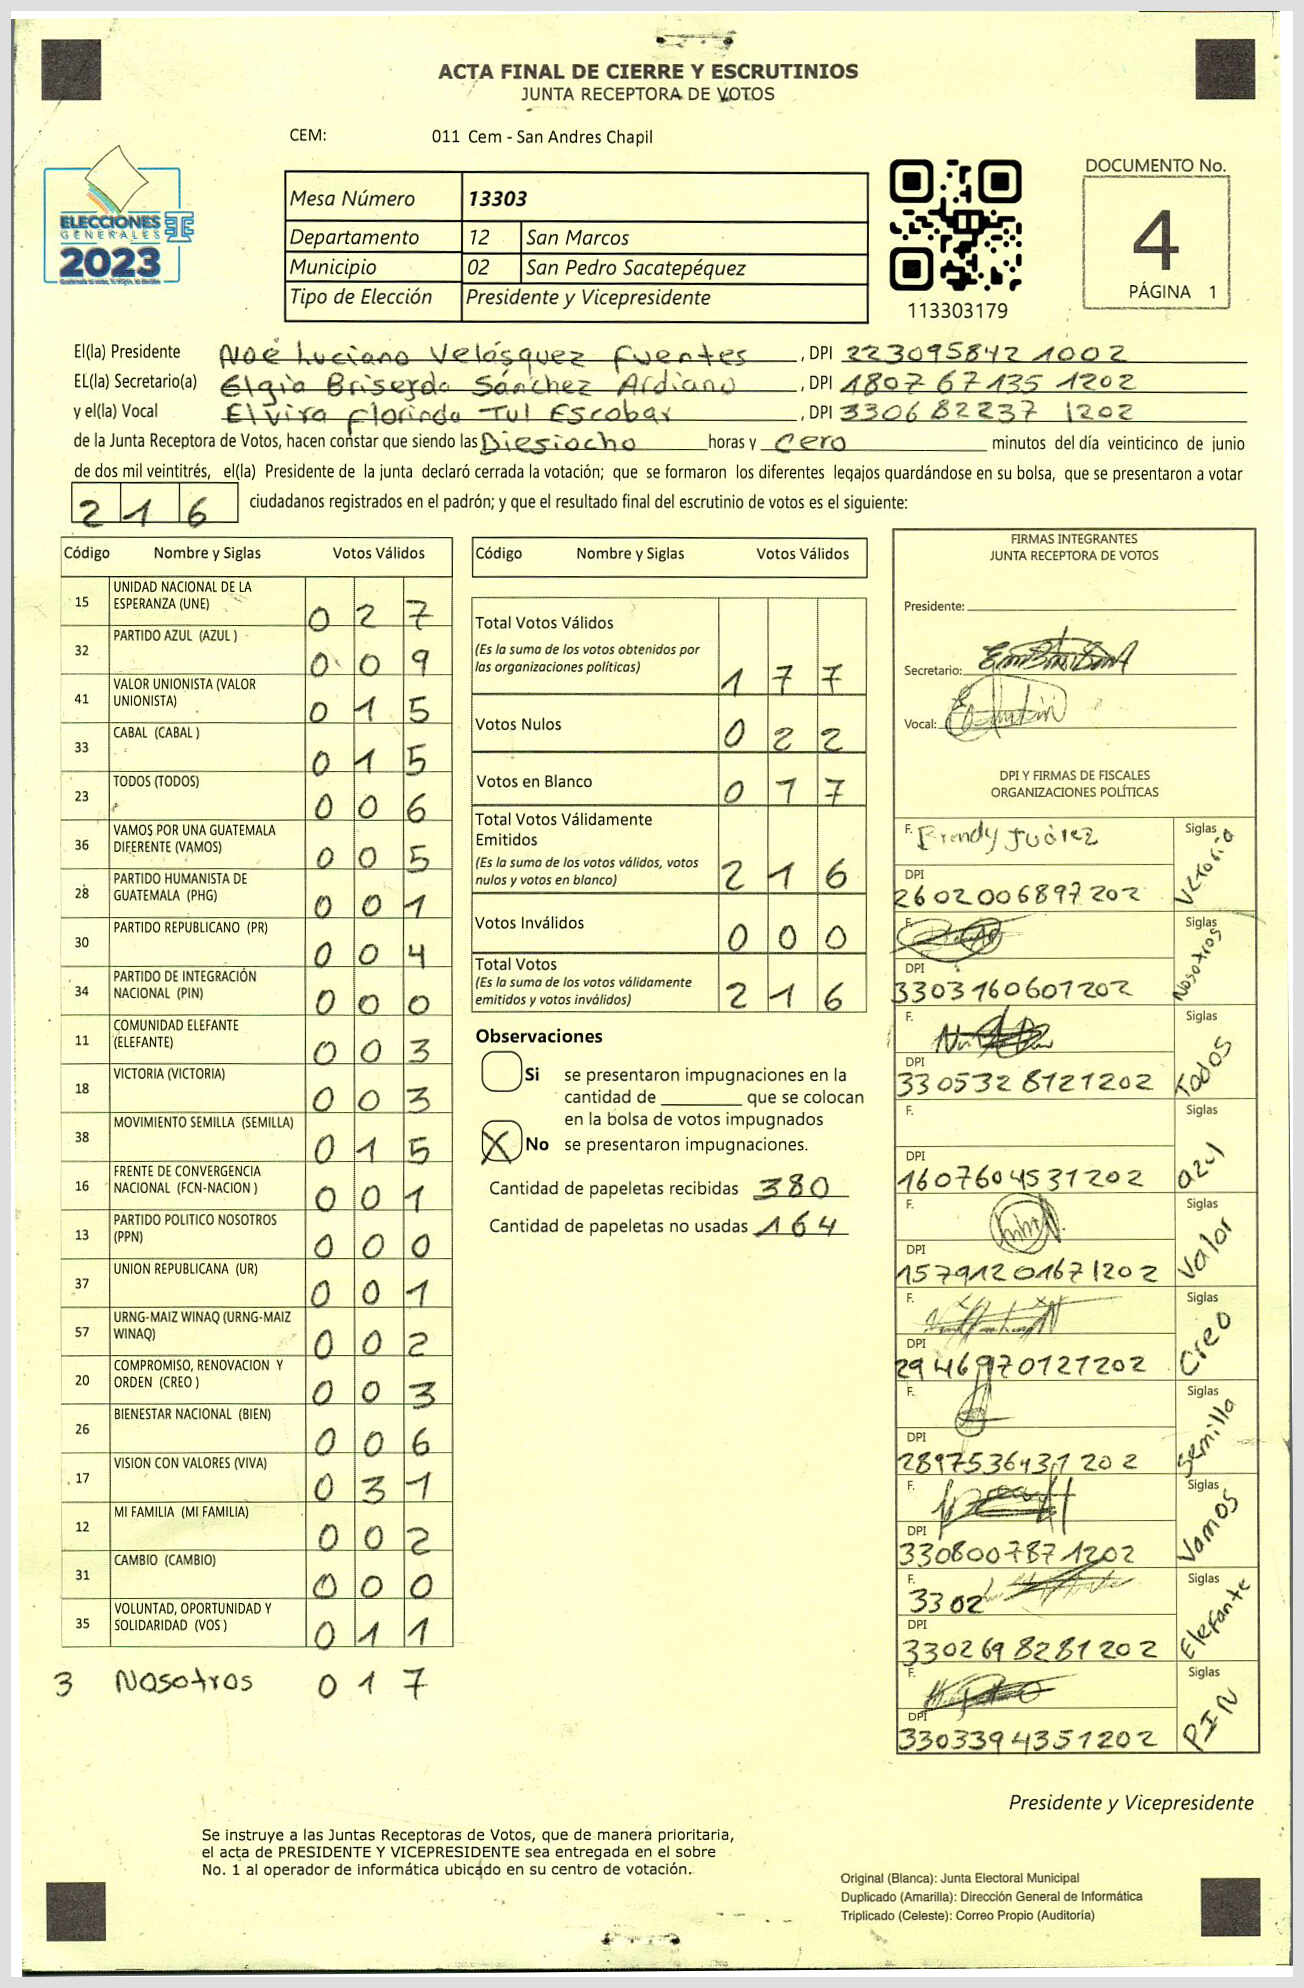 ACTA FINAL DE CIERRE Y ESCRUTINIOS
JUNTA RECEPTORA DE VOTOS
CEM: 011 Cem - San Andres Chapil
ELECCIONES
GENERALES
2023
Mesa Número 13303
Departamento 12 San Marcos
Municipio 02 San Pedro Sacatepéquez
Tipo de Elección Presidente y Vicepresidente
113303179
DOCUMENTO No.
4
PÁGINA 1
El(la) Presidente Noé Luciano Velásquez Fuentes, DPI 223095842 1002
EL(la) Secretario(a) Elgia Briserda Sánchez Ardiano, DPI 1807 67135 1202
y el(la) Vocal Elvira Florinda Tul Escobar, DPI 330682237 1202
de la Junta Receptora de Votos, hacen constar que siendo las Diesiocho horas y Cero minutos del día veinticinco de junio
de dos mil veintitrés, el(la) Presidente de la junta declaró cerrada la votación; que se formaron los diferentes legajos quardándose en su bolsa, que se presentaron a votar
216 ciudadanos registrados en el padrón; y que el resultado final del escrutinio de votos es el siguiente:
Código Nombre y Siglas Votos Válidos
15 UNIDAD NACIONAL DE LA ESPERANZA (UNE) 027
32 PARTIDO AZUL (AZUL ) 009
41 VALOR UNIONISTA (VALOR UNIONISTA) 015
33 CABAL (CABAL ) 015
23 TODOS (TODOS) 006
36 VAMOS POR UNA GUATEMALA DIFERENTE (VAMOS) 005
28 PARTIDO HUMANISTA DE GUATEMALA (PHG) 001
30 PARTIDO REPUBLICANO (PR) 004
34 PARTIDO DE INTEGRACIÓN NACIONAL (PIN) 000
11 COMUNIDAD ELEFANTE (ELEFANTE) 003
18 VICTORIA (VICTORIA) 003
38 MOVIMIENTO SEMILLA (SEMILLA) 015
16 FRENTE DE CONVERGENCIA NACIONAL (FCN-NACION ) 001
13 PARTIDO POLITICO NOSOTROS (PPN) 000
37 UNION REPUBLICANA (UR) 001
57 URNG-MAIZ WINAQ (URNG-MAIZ WINAQ) 002
20 COMPROMISO, RENOVACION Y ORDEN (CREO ) 003
26 BIENESTAR NACIONAL (BIEN) 006
17 VISION CON VALORES (VIVA) 031
12 MI FAMILIA (MI FAMILIA) 002
31 CAMBIO (CAMBIO) 000
35 VOLUNTAD, OPORTUNIDAD Y SOLIDARIDAD (VOS ) 011
3 Nosotros 017
Código Nombre y Siglas Votos Válidos
Total Votos Válidos
(Es la suma de los votos obtenidos por
las organizaciones políticas) 177
Votos Nulos 022
Votos en Blanco 017
Total Votos Válidamente
Emitidos
(Es la suma de los votos válidos, votos
nulos y votos en blanco) 216
Votos Inválidos 000
Total Votos
(Es la suma de los votos válidamente
emitidos y votos inválidos) 216
Observaciones
Si se presentaron impugnaciones en la
cantidad de ________ que se colocan
en la bolsa de votos impugnados
X No se presentaron impugnaciones.
Cantidad de papeletas recibidas 380
Cantidad de papeletas no usadas 164
FIRMAS INTEGRANTES
JUNTA RECEPTORA DE VOTOS
Presidente:
Secretario:
Vocal:
DPI Y FIRMAS DE FISCALES
ORGANIZACIONES POLÍTICAS
F. Brendy Juárez Siglas Victoria
DPI 2602006897202
F. Siglas Nosotros
DPI 3303160601202
F. Siglas Todos
DPI 3305328121202
F. Siglas azul
DPI 1607604531202
F. Siglas Valor
DPI 15791201671202
F. Siglas Creo
DPI 2946970121202
F. Siglas Semilla
DPI 2897536431 202
F. Siglas Vamos
DPI 3308007871202
F. 3302 Siglas Elefante
DPI 3302698281202
F. Siglas PIN
DPI 3303394351202
Presidente y Vicepresidente
Se instruye a las Juntas Receptoras de Votos, que de manera prioritaria,
el acta de PRESIDENTE Y VICEPRESIDENTE sea entregada en el sobre
No. 1 al operador de informática ubicado en su centro de votación.
Original (Blanca): Junta Electoral Municipal
Duplicado (Amarilla): Dirección General de Informática
Triplicado (Celeste): Correo Propio (Auditoría)